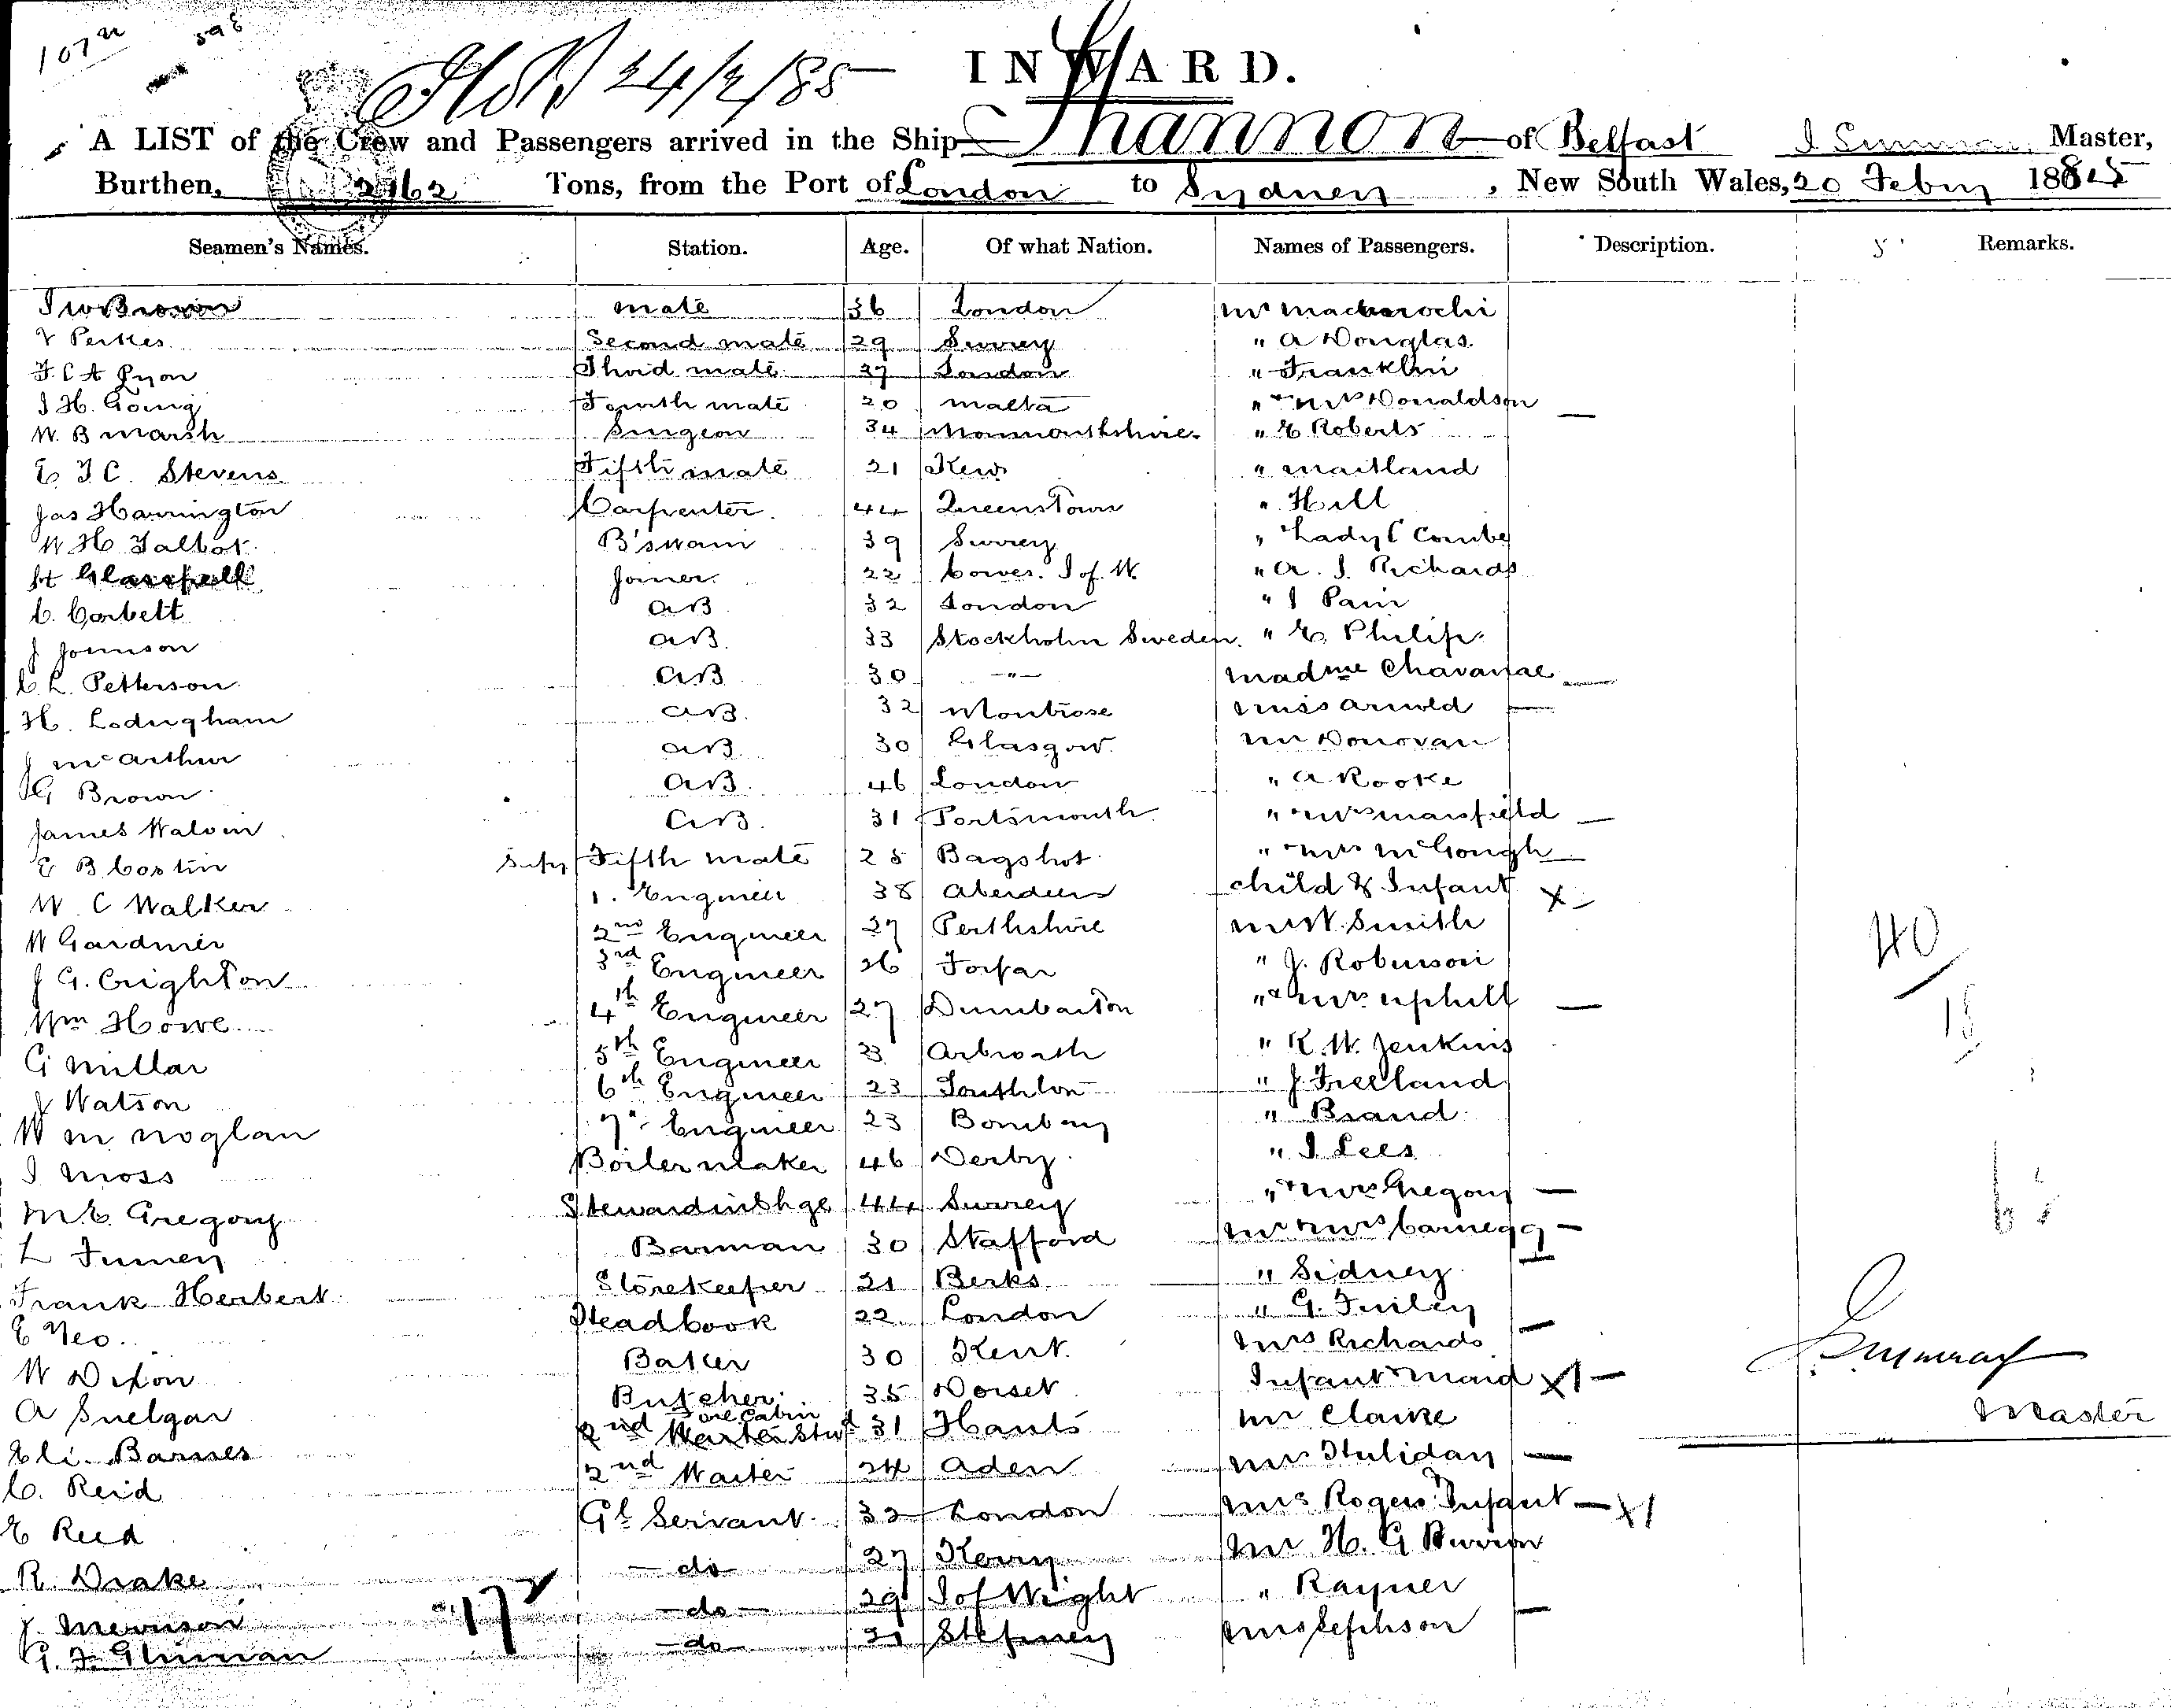 INWARD.
24/2/85
A LIST of the Crew and Passengers arrived in the Ship Shannon of Belfast Master,
Burthen, 2162 Tons, from the Port of London to Sydney, New South Wales, 20 Febry 1885
Seamen's Names. Station. Age. Of what Nation. Names of Passengers. Description. Remarks.
Brown mate 36 London Mr
Perkes Second mate 29 Surrey " A Douglas
Third mate London " Franklin
J H. Going Fourth mate 20 Malta " Mrs Donaldson
W. B Marsh Surgeon 34 Monmouthshire " E Roberts
E J C. Stevens Fifth mate 21 Kew " Maitland
Jas Harrington Carpenter 44 Queenstown " Hill
W H Talbot B'swain 39 Surrey " Lady C Combe
Joiner 22 Cowes. I of W. " A. J. Richards
C. Corbett AB 32 London " J Pain
J Johnson AB 33 Stockholm Sweden. " E. Philip.
C. L. Petterson AB 30 " Madme
H. Lodingham AB. 32 Montrose Miss Arnold
J McArthur AB. 30 Glasgow. Mr Donovan
G Brown AB. 46 London " A Rooke
James Walvin AB. 31 Portsmouth " Mrs Mansfield
E B Costin Supy Fifth mate 25 Bagshot " Mrs McGough
W. C Walker 1. Engineer 38 Aberdeen child & Infant x
W Gardiner 2nd Engineer 27 Perthshire Mr W. Smith
J G. Crighton 3rd Engineer 26 Forfar " J. Robinson
Wm Howe 4th Engineer 27 Dumbarton " & Mrs Uphill
G Millar 5th Engineer 23 Arbroath " R. W. Jenkins
J Watson 6th Engineer 23 Southton " J. Freeland
7 Engineer 23 Bombay " Brand
J Moss Boiler maker 46 Derby " J Lees
M. E. Gregory Steward in Chge 44 Surrey " Mrs Gregory
L Barman 30 Stafford Mr Mrs
Frank Herbert Storekeeper 21 Berks " Sidney
E Neo. Head Cook 22 London " G.
W Dixon Baker 30 Kent. Mrs Richards
A Snelgar Butcher 35 Dorset Infant & maid x1
Eli Barnes 2nd Fore Cabin Stwd 31 Hants Mr Clarke
C. Reid 2nd Waiter 24 Aden Mrs
E Reed Gl Servant 32 London Mrs Rogers Infant x1
R. Drake do 27 Mr H. G
J. Merrison do 29 I of Wight " Rayner
do 21 Stepney Mrs Jephson
40
15
Master